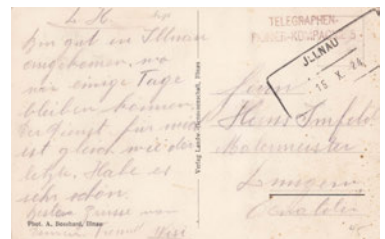 L. H.
Bin gut in Illnau
angekommen, wo
wir einige Tage
bleiben können.
Dienst für mich
ist gleich wie der
letzte. Habe es
sehr schön.
Beste Grüsse von
Phot. A. Bosshard, Illnau
Verlag Landw. Illnau
TELEGRAPHEN-
PIONIER-KOMPAGNIE 3
JLLNAU
15 X. 24
Herrn
Hans Imfeld
Malermeister
Lungern
Obwalden